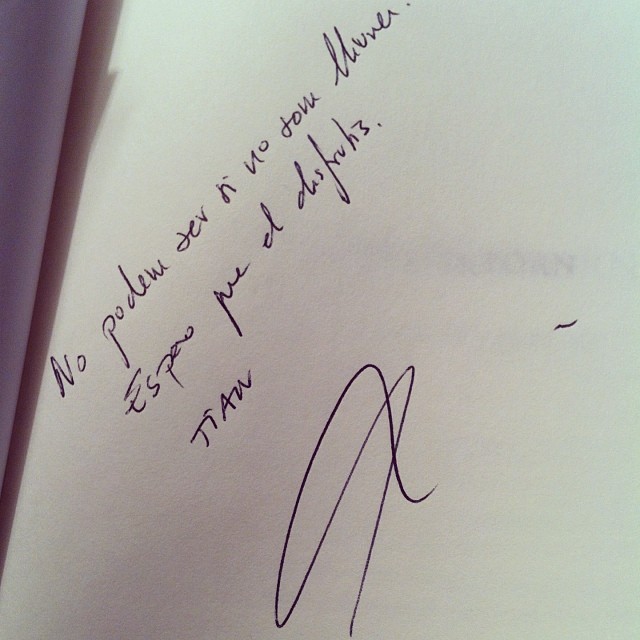 No podem ser si no som lliures.
Espero que el disfrutis.
TIAN